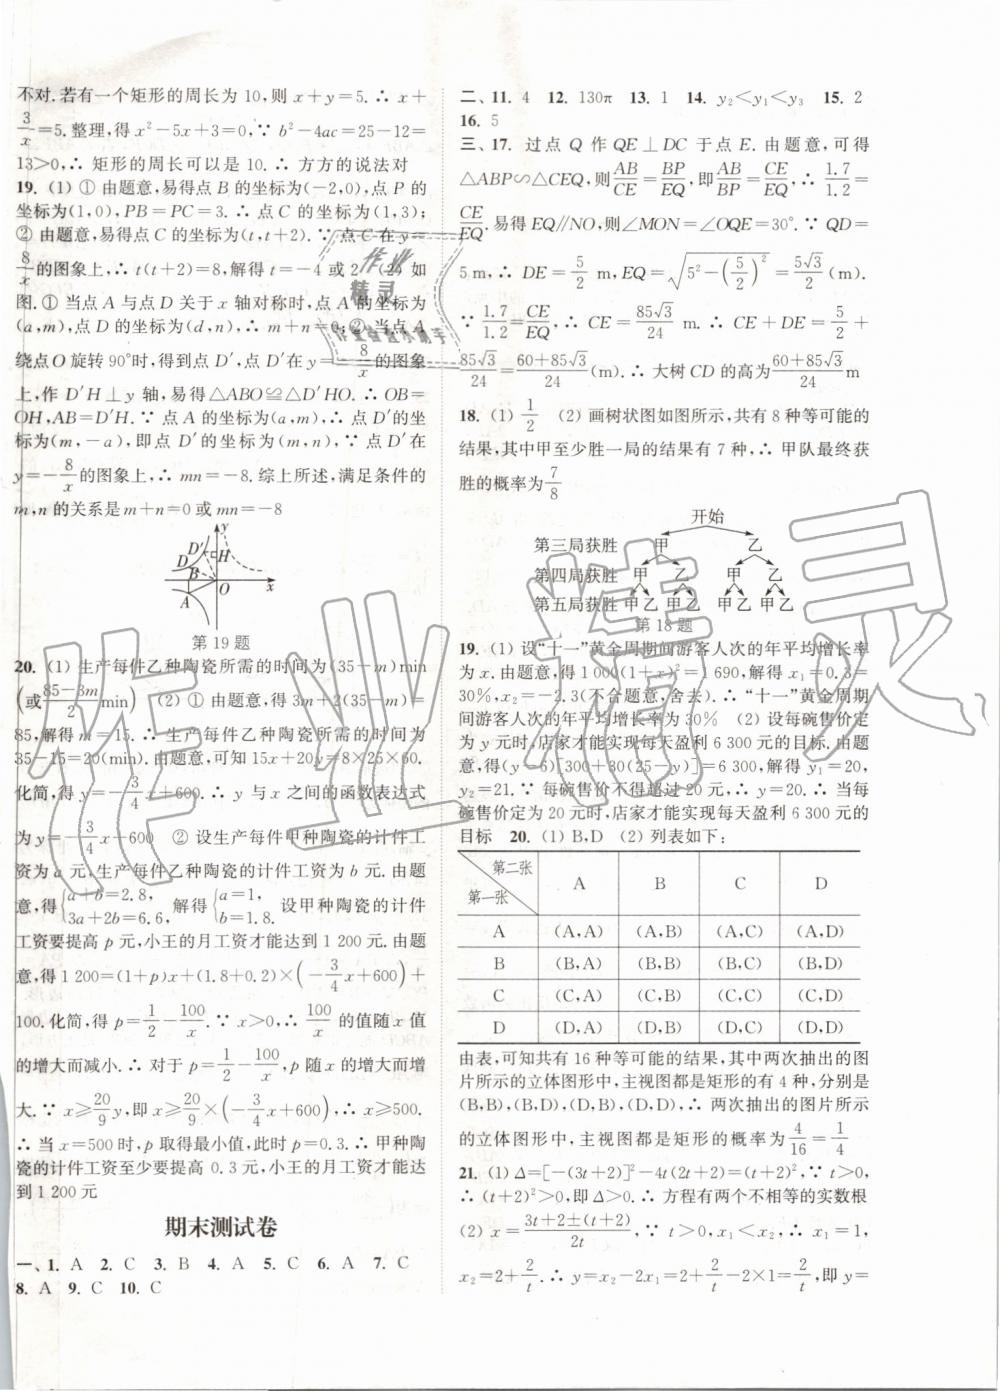 不对.若有一个矩形的周长为10,则x+y=5.∴ x+
3/x=5.整理,得x²-5x+3=0,∵ b²-4ac=25-12=
13>0,∴ 矩形的周长可以是10.∴ 方方的说法对
19. (1) ① 由题意,易得点B的坐标为(-2,0),点P的
坐标为(1,0),PB=PC=3.∴ 点C的坐标为(1,3);
② 由题意,易得点C的坐标为(t,t+2).∵ 点C在y=
8/x的图象上,∴ t(t+2)=8,解得t=-4或2 (2) 如
图.① 当点A与点D关于x轴对称时,点A的坐标为
(a,m),点D的坐标为(d,n),∴ m+n=0;② 当点A
绕点O旋转90°时,得到点D′,点D′在y=-8/x的图象
上,作D′H⊥y轴,易得△ABO≌△D′HO.∴ OB=
OH,AB=D′H.∵ 点A的坐标为(a,m),∴ 点D′的坐
标为(m,-a),即点D′的坐标为(m,n).∵ 点D′在
y=-8/x的图象上,∴ mn=-8.综上所述,满足条件的
m,n的关系是m+n=0或mn=-8
y
D′ H
D
B
A O x
第19题
20. (1) 生产每件乙种陶瓷所需的时间为(35-m)min
(或(85-3m)/2 min) (2) ① 由题意,得3m+2(35-m)=
85,解得m=15.∴ 生产每件乙种陶瓷所需的时间为
35-15=20(min).由题意,可知15x+20y=8×25×60.
化简,得y=-3/4x+600.∴ y与x之间的函数表达式
为y=-3/4x+600 ② 设生产每件甲种陶瓷的计件工
资为a元,生产每件乙种陶瓷的计件工资为b元.由题
意,得{a+b=2.8, 3a+2b=6.6, 解得{a=1, b=1.8. 设甲种陶瓷的计件
工资要提高p元,小王的月工资才能达到1 200元.由题
意,得1 200=(1+p)x+(1.8+0.2)×(-3/4x+600)+
100.化简,得p=1/2-100/x.∵ x>0,∴ 100/x的值随x值
的增大而减小.∴ 对于p=1/2-100/x,p随x的增大而增
大.∵ x≥20/9y,即x≥20/9×(-3/4x+600),∴ x≥500.
∴ 当x=500时,p取得最小值,此时p=0.3.∴ 甲种陶
瓷的计件工资至少要提高0.3元,小王的月工资才能达
到1 200元
期末测试卷
一、1. A 2. C 3. B 4. A 5. C 6. A 7. C
8. A 9. C 10. C
二、11. 4 12. 130π 13. 1 14. y₂<y₁<y₃ 15. 2
16. 5
三、17. 过点Q作QE⊥DC于点E.由题意,可得
△ABP∽△CEQ,则AB/CE=BP/EQ,即AB/BP=CE/EQ=1.7/1.2=
CE/EQ.易得EQ∥NO,则∠MON=∠OQE=30°.∵ QD=
5 m,∴ DE=5/2 m,EQ=√(5²-(5/2)²)=5√3/2(m).
∵ 1.7/1.2=CE/EQ,∴ CE=85√3/24 m.∴ CE+DE=5/2+
85√3/24=(60+85√3)/24(m).∴ 大树CD的高为(60+85√3)/24 m
18. (1) 1/2 (2) 画树状图如图所示,共有8种等可能的
结果,其中甲至少胜一局的结果有7种,∴ 甲队最终获
胜的概率为7/8
开始
第三局获胜 甲 乙
第四局获胜 甲 乙 甲 乙
第五局获胜 甲乙 甲乙 甲乙 甲乙
第18题
19. (1) 设“十一”黄金周期间游客人次的年平均增长率
为x.由题意,得1 000(1+x)²=1 690,解得x₁=0.3=
30%,x₂=-2.3(不合题意,舍去).∴ “十一”黄金周期
间游客人次的年平均增长率为30% (2) 设每碗售价定
为y元时,店家才能实现每天盈利6 300元的目标.由题
意,得(y-6)[300+30(25-y)]=6 300,解得y₁=20,
y₂=21.∵ 每碗售价不得超过20元,∴ y=20.∴ 当
每碗售价定为20元时,店家才能实现每天盈利6 300元的
目标 20. (1) B,D (2) 列表如下:
第二张
第一张 A B C D
A (A,A) (A,B) (A,C) (A,D)
B (B,A) (B,B) (B,C) (B,D)
C (C,A) (C,B) (C,C) (C,D)
D (D,A) (D,B) (D,C) (D,D)
由表,可知共有16种等可能的结果,其中两次抽出的图
片所示的立体图形中,主视图都是矩形的有4种,分别是
(B,B),(B,D),(D,B),(D,D),∴ 两次抽出的图片所示
的立体图形中,主视图都是矩形的概率为4/16=1/4
21. (1) Δ=[-(3t+2)]²-4t(2t+2)=(t+2)²,∵ t>0,
∴ (t+2)²>0,即Δ>0.∴ 方程有两个不相等的实数根
(2) x=(3t+2±(t+2))/2t,∵ t>0,x₁<x₂,∴ x₁=1,
x₂=2+2/t.∴ y=x₂-2x₁=2+2/t-2×1=2/t,即y=
作业
精灵
作业精灵